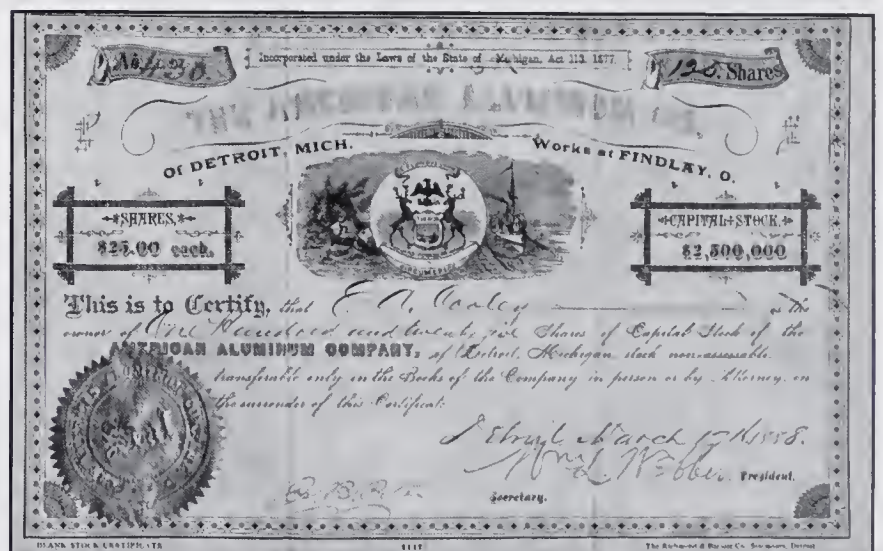 Incorporated under the Laws of the State of Michigan, Act 113, 1877.
Shares
THE AMERICAN ALUMINUM CO.
Of DETROIT, MICH. Works at FINDLAY, O.
SHARES,
$25.00 each.
CAPITAL STOCK.
$2,500,000
This is to Certify, that is the
owner of One Hundred and twenty five Shares of Capital Stock of the
AMERICAN ALUMINUM COMPANY, of Detroit, Michigan stock non-assessable
transferable only in the Books of the Company in person or by Attorney, on
the surrender of this Certificate
Detroit, March 17th 1888.
President.
Secretary.
BLANK STOCK CERTIFICATE
The Richmond & Backus Co. Stationers, Detroit